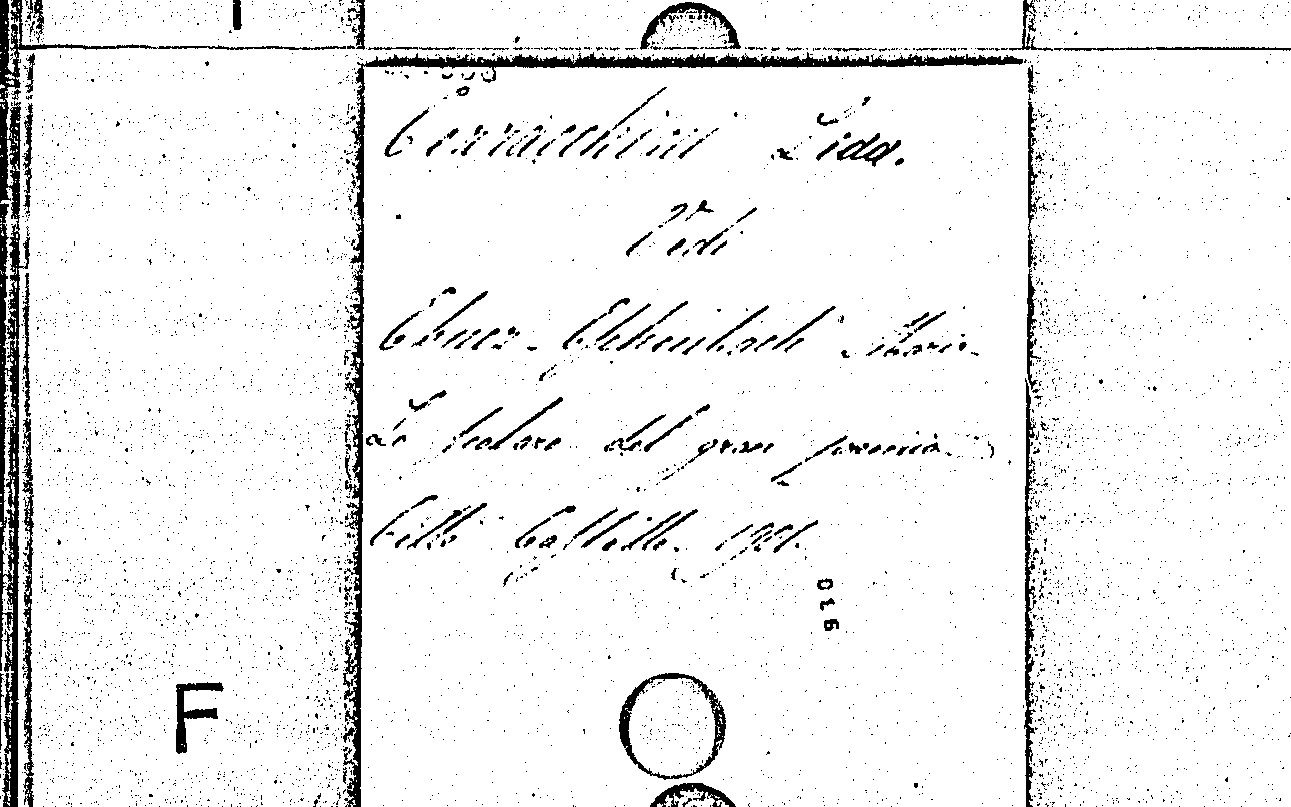 Cerracchini Lida.
Vedi
Ebner-Eschenbach Maria
Lo scolare del gran premio
Città Castello. 1901.
910
F